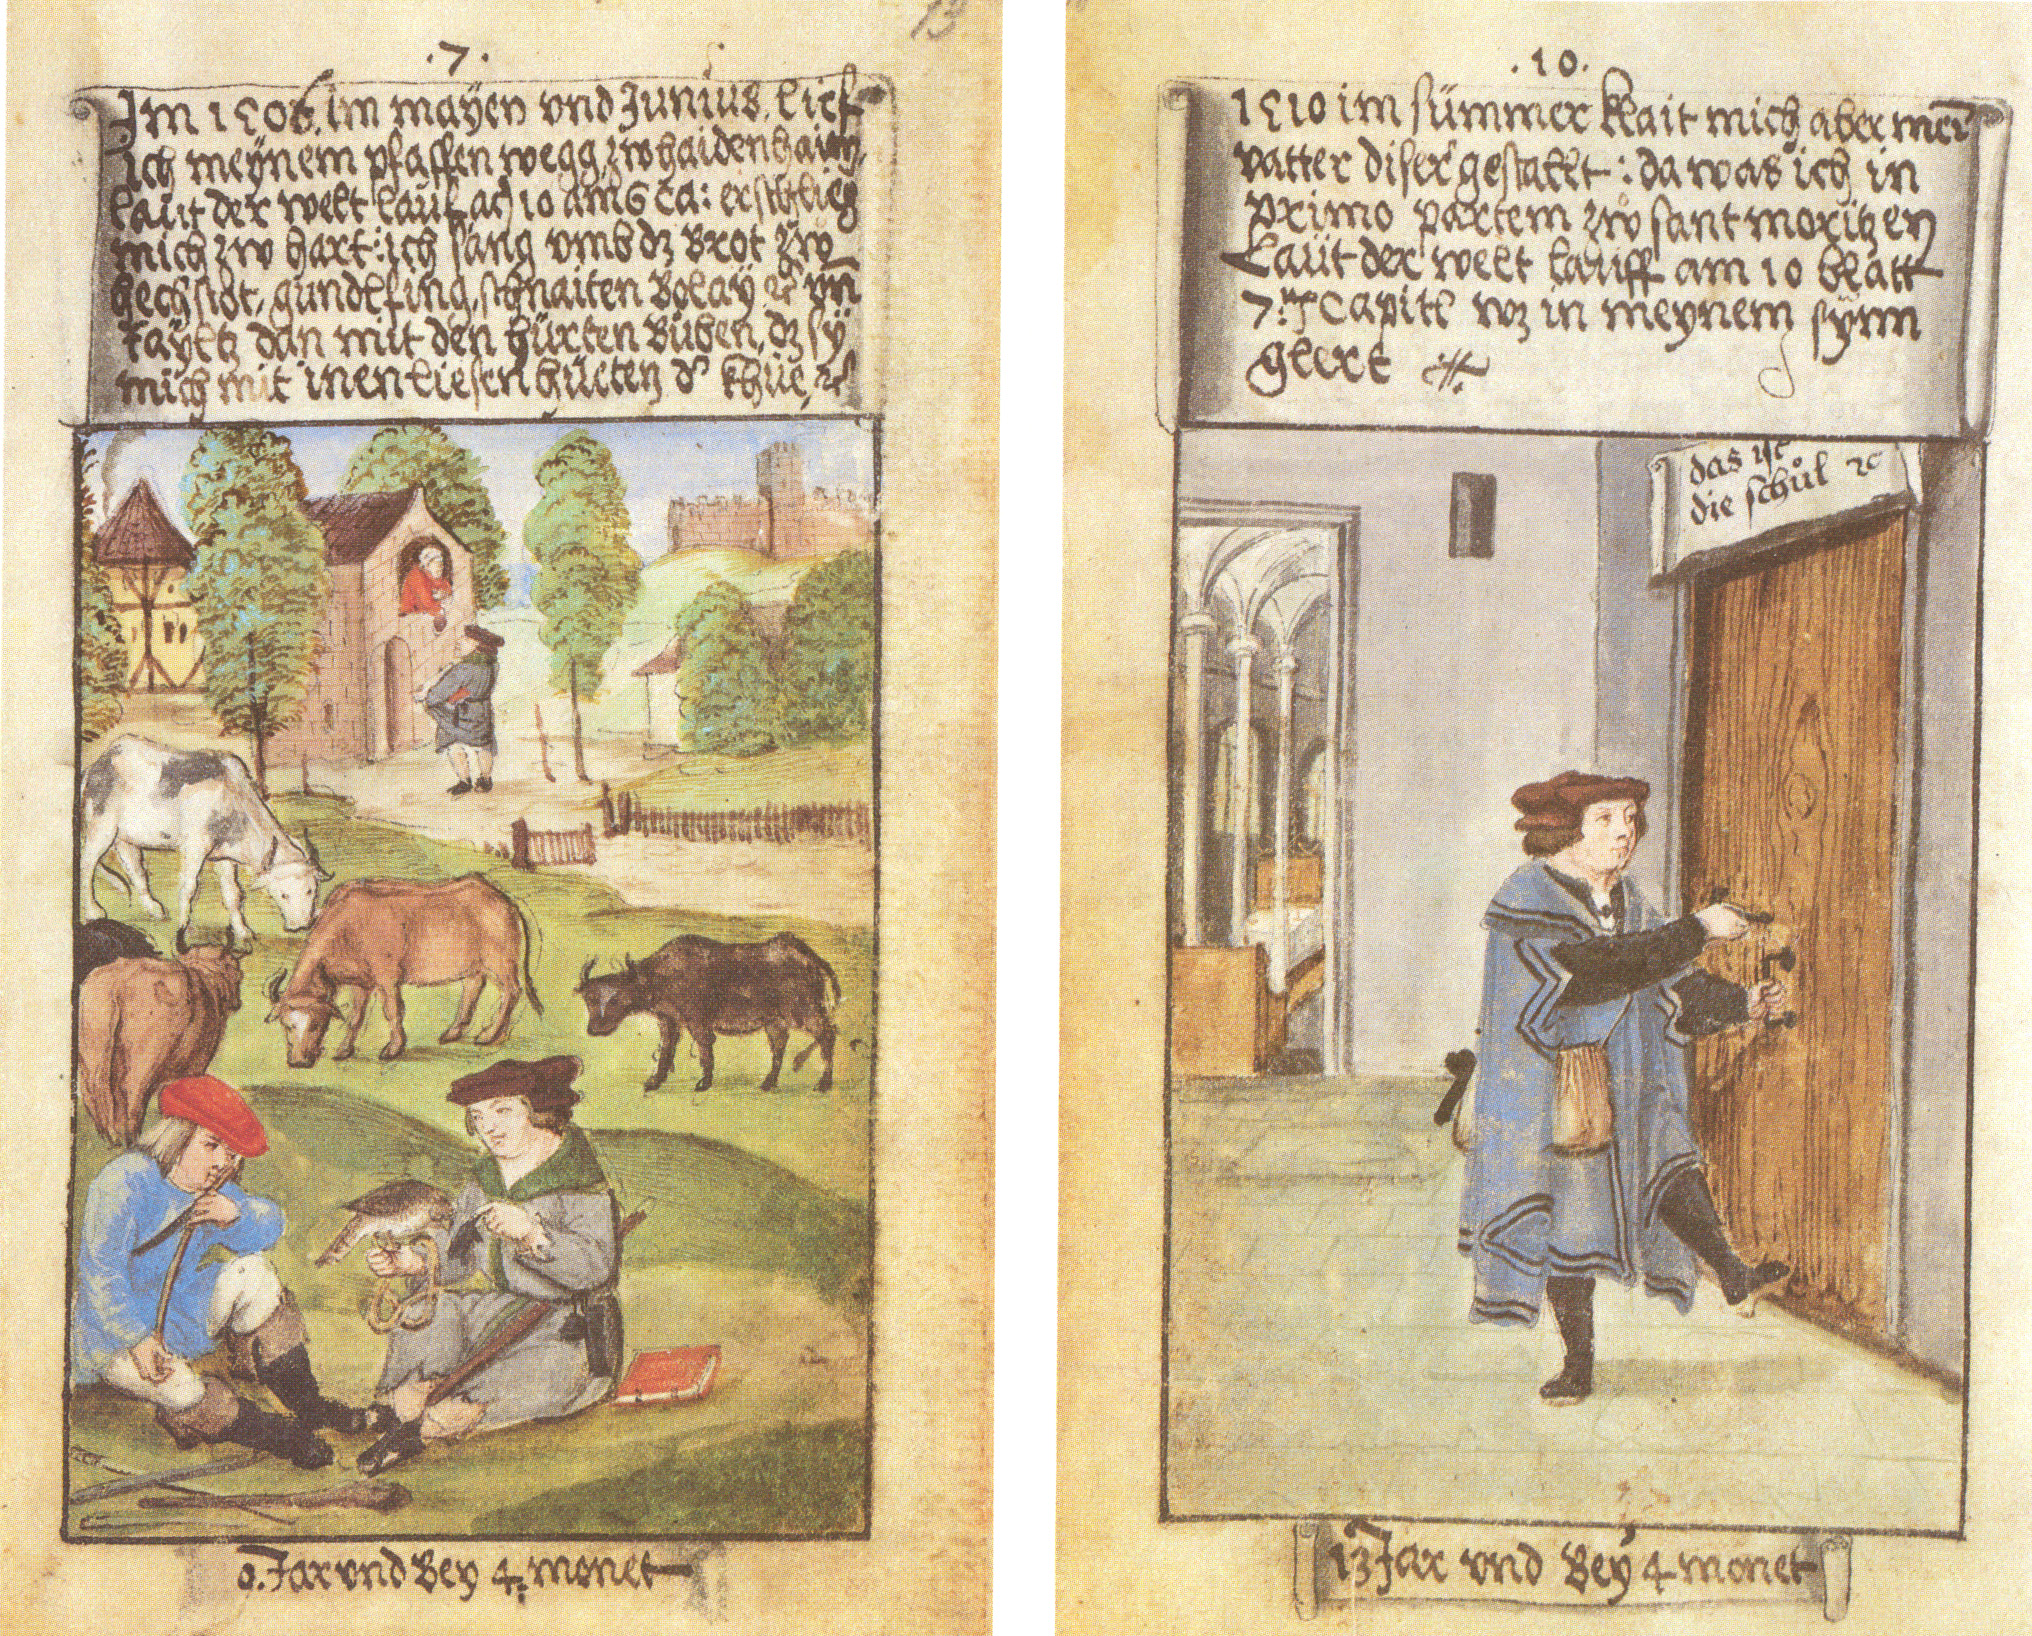 .7.
Im 1506. im mayen vnd Junius. lief
ich meynem pfaffen wegg, zw haidenhaim,
laut der welt lauf am 10 am 6 ca: er schlueg
mich zw hart: ich sang vmb dz Brot zw
hechstet, gundlfing, schnaiten Bolay ꝛc vn̄
tayltz dan mit den hürten Buben, dz sy
mich mit inen liesen hüeten d' khüe, ꝛc
9. Jar vnd Bey 4. monet
13
.10.
1510 im sümmer klait mich aber mei
vatter diser gestallt: da was ich in
primo partem zw sant moritzen
Laut der welt lauff am 10 blatt
7: Capitl wz in meynem synn
glert
das ist
die schůl ꝛc
13 Jar vnd Bey 4 monet